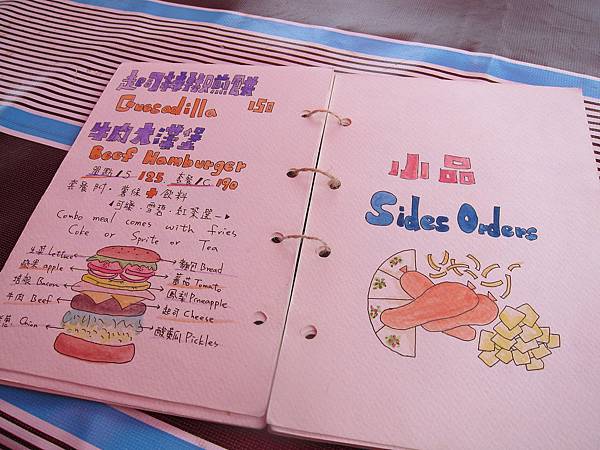 起司辣椒煎餅
Quesadilla 150
牛肉大漢堡
Beef Hamburger
單點/S 125 套餐/C 190
套餐附·薯條+飲料
可樂·雪碧·紅茶
Combo meal comes with fries
Coke or Sprite or Tea
生菜 Lettuce
麵包 Bread
蘋果 apple
蕃茄 Tomato
培根 Bacon
鳳梨 Pineapple
牛肉 Beef
起司 Cheese
Onion
酸黃瓜 Pickles
小品
Sides Orders